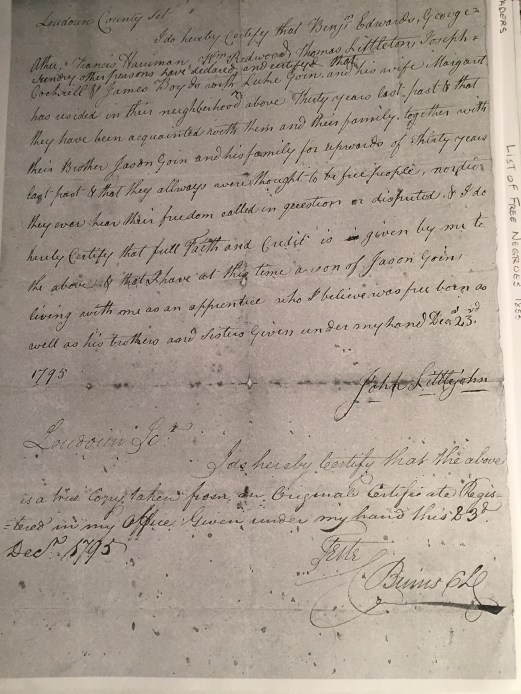 Loudoun County Sct.
I do hereby Certify that Benjn Edwards, George
Francis Hauman, Wm Redwood, Thomas Littleton, Joseph
Sundry other persons have declared and certifyd that
Cockrill & James Boyd with Luke Goin, and his wife Margaret
has resided in their neighborhood above Thirty years last past & that
they have been acquainted with them and their family, together with
their Brother Jason Goin and his family for upwards of thirty years
last past & that they allways were thought to be free people, nor did
they ever hear their freedom called in question or disputed. & I do
hereby Certify that full Faith and Credit is given by me to
the above & that I have at this time a son of Jason Goins
living with me as an apprentice who I believe was free born as
well as his brothers and sisters Given under my hand Decr 23rd
1795
John Littlejohn
Loudoun Sct.
I do hereby Certify that the above
is a true Copy taken from an Original Certificate Regis=
=tered in my Office Given under my hand this 23d
Decr. 1795
Teste
Binns CLC
LIST OF FREE NEGROES